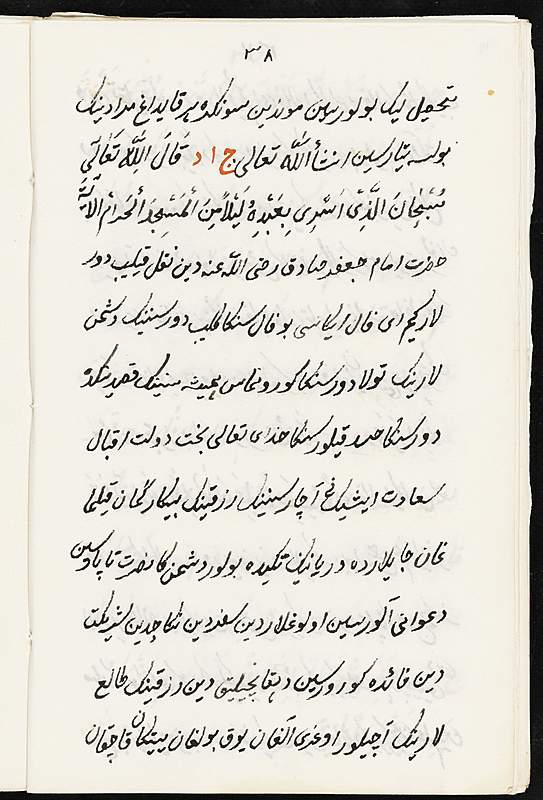 ٣٨
تحصیل لیک بولورسین موندین سونکره هر قایداغ مرادینک
بولسه یتارسین انشأالله تعالی ج ا د قَالَ اللّٰه تَعَالَی
سُبْحَانَ الَّذِیْ اَسْرِی بِعَبْدِهِ لَیْلاً مِنَ الْمَسْجِدِ الْحَرَامِ الآیَه
حضرت امام جعفر صادق رضی الله عنه دین نقل قیلیب دور
لار کیم ای فال ایکاسی بو فال سنکا کلیب دور سنینک دشمن
لارینک تولا دور سنکا کورونماس همیشه سنینک قصدینکده
دور سنکا حسد قیلور سنکا خدای تعالی بخت دولت اقبال
سعادت ایشیکنی آچار سنینک رزقینک بیکار کمان قیلما
غان جایلارده دریانینک تکیده بولور دشمن کا نصرت تاپارسین
دعوانی آلورسین اولوغلاردین سفردین نکاحدین شریکت
دین فائده کورورسین دهقانچیلیق دین رزقینک طالع
لارینک آچیلور اوغری آلغان یوق بولغان ییتکان قاچقان